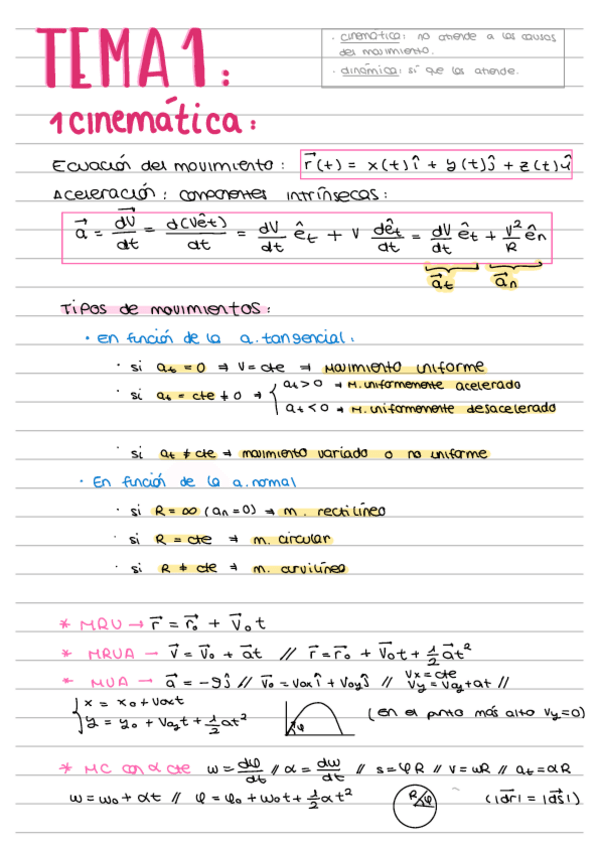 TEMA 1:
· cinemática: no atiende a las causas
del movimiento.
· dinámica: sí que las atiende.
1 cinemática:
Ecuación del movimiento: r⃗(t) = x(t)î + y(t)ĵ + z(t)k̂
Aceleración: componentes intrínsecas:
a⃗ = dv⃗/dt = d(vêt)/dt = dv/dt êt + v dêt/dt = dv/dt êt + v²/R ên
a⃗t a⃗n
Tipos de movimientos:
· en función de la a. tangencial:
· si at = 0 → v = cte → movimiento uniforme
· si at = cte ≠ 0 → { at > 0 → M. uniformemente acelerado
at < 0 → M. uniformemente desacelerado
· si at ≠ cte → movimiento variado o no uniforme
· En función de la a. normal
· si R = ∞ (an = 0) → m. rectilíneo
· si R = cte → m. circular
· si R ≠ cte → m. curvilíneo
* MRU → r⃗ = r⃗o + v⃗o t
* MRUA → v⃗ = v⃗o + a⃗t // r⃗ = r⃗o + v⃗ot + 1/2 a⃗t²
* MUA → a⃗ = -gĵ // v⃗o = voxî + voyĵ // vx = cte
vy = voy + at //
{ x = xo + voxt
y = yo + voyt + 1/2 at² φ (en el punto más alto vy=0)
* MC con α cte ω = dφ/dt // α = dω/dt // s = φR // v = ωR // at = αR
ω = ωo + αt // φ = φo + ωot + 1/2 αt² R φ (|dr⃗| = |ds⃗|)